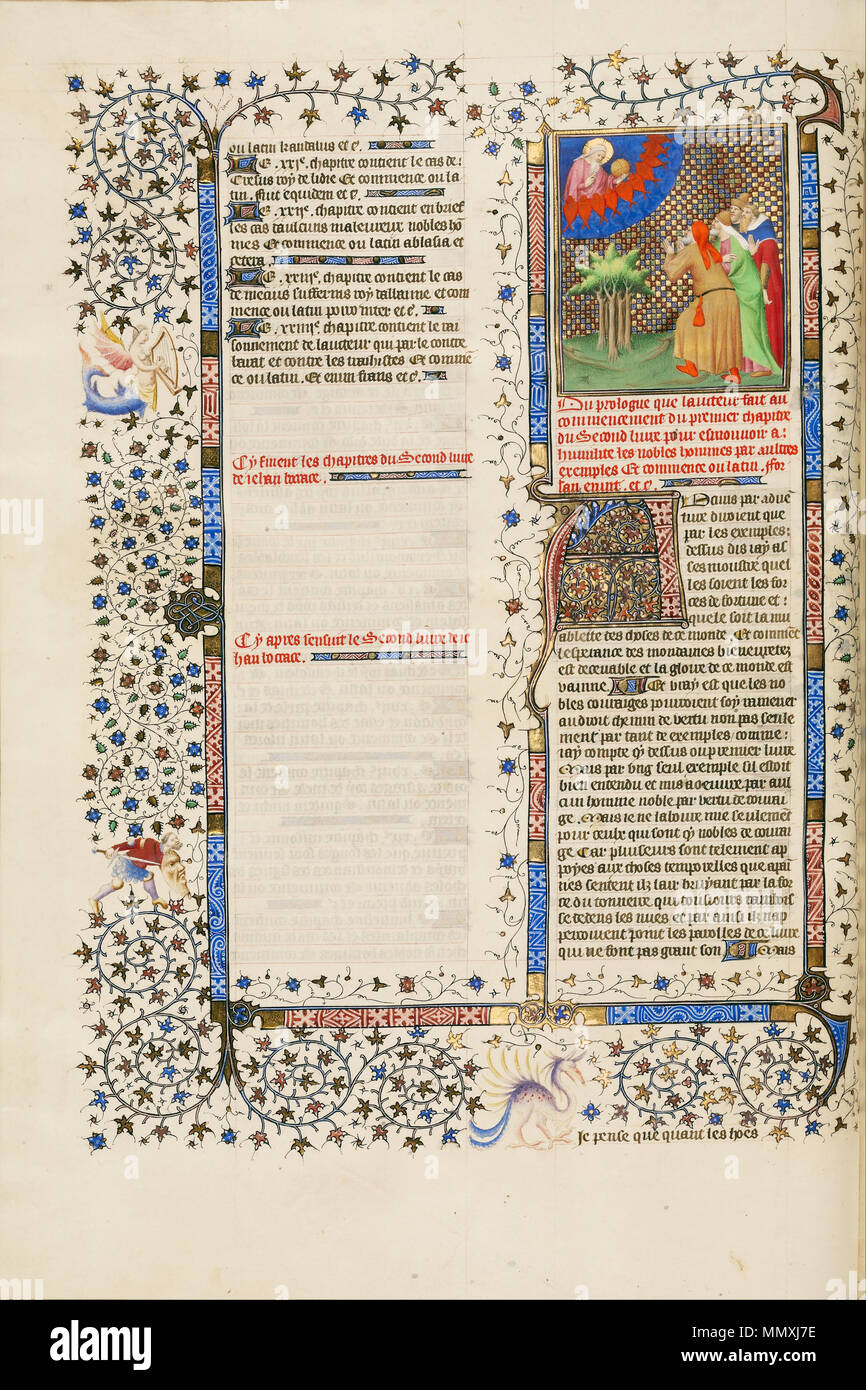 ou latin kandalus et c̃.
LE .xxi.e chapitre contient le cas de :
Cresus roy de lidie Et commence ou la
tin . fuit equidem et c̃.
LE .xxii.e chapitre contient en brief
les cas daulcuns maleureux nobles ho
mes Et commence ou latin ablata et
cetera .
LE .xxiii.e chapitre contient le cas
de mecius suffetius roy dalbanie et com
mence ou latin et c̃.
LE .xxiiii.e chapitre contient le rai
sonnement de lauteur qui parle contre
barat et contre les traihistres Et comme
ce ou latin . Et enim et c̃.
Cy finent les chapitres du Second livre
de iehan bocace .
Cy apres sensuit le Second livre de ie
han bocace .
Du prologue que lauteur fait au
commencement du premier chapitre
du Second livre pour esmouvoir a :
humilite les nobles hommes par aultres
exemples Et commence ou latin . For
san erunt . et c̃.
Aulcuns par adue
ture diroient que
par les exemples :
dessus dis iay as
ses moustre quel
les soient les for
ces de fortune et :
quele soit la mu
ablette des choses de ce monde . Et comment
lesperance des mondaines bieneuretez
est decevable et la gloire de ce monde est
vainne . Et vray est que les no
bles couraiges pourroient soy ramener
au droit chemin de vertu non pas seule
ment par tant de exemples comme :
iay compte cy dessus ou premier livre
Mais par ung seul exemple sil estoit
bien entendu et mis a oeuvre par aul
cun homme noble par vertu de courai
ge . Mais ie ne laboure mie seulement
pour ceulx qui sont cy nobles de courai
ge Car pluiseurs sont telement ap
poyes aux choses temporelles que a pai
nes sentent ilz lair bruyant par la for
ce du tonnerre qui tousiours
se dedens les nues et par ainsi ilz nap
percoivent point les parolles de ce livre
qui ne font pas grant son Mais
Je pense que quant les hoes
alamy
Image ID: MMXJ7E
www.alamy.com